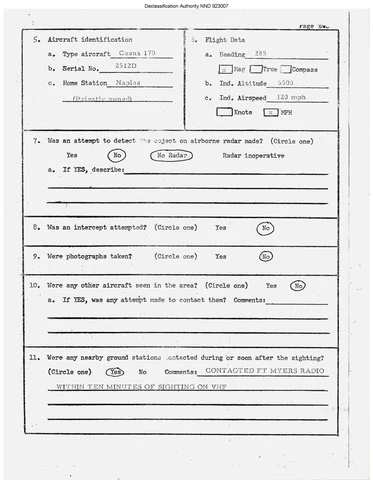 Declassification Authority NND 923007
Page Two
5. Aircraft identification
a. Type aircraft Cessna 170
b. Serial No. 2512D
c. Home Station Naples
(Privately owned)
6. Flight Data
a. Heading 285
x Mag True Compass
b. Ind. Altitude 5500
c. Ind. Airspeed 120 mph
Knots x MPH
7. Was an attempt to detect the object on airborne radar made? (Circle one)
Yes No No Radar Radar inoperative
a. If YES, describe:
8. Was an intercept attempted? (Circle one) Yes No
9. Were photographs taken? (Circle one) Yes No
10. Were any other aircraft seen in the area? (Circle one) Yes No
a. If YES, was any attempt made to contact them? Comments:
11. Were any nearby ground stations contacted during or soon after the sighting?
(Circle one) Yes No Comments: CONTACTED FT MYERS RADIO
WITHIN TEN MINUTES OF SIGHTING ON VHF